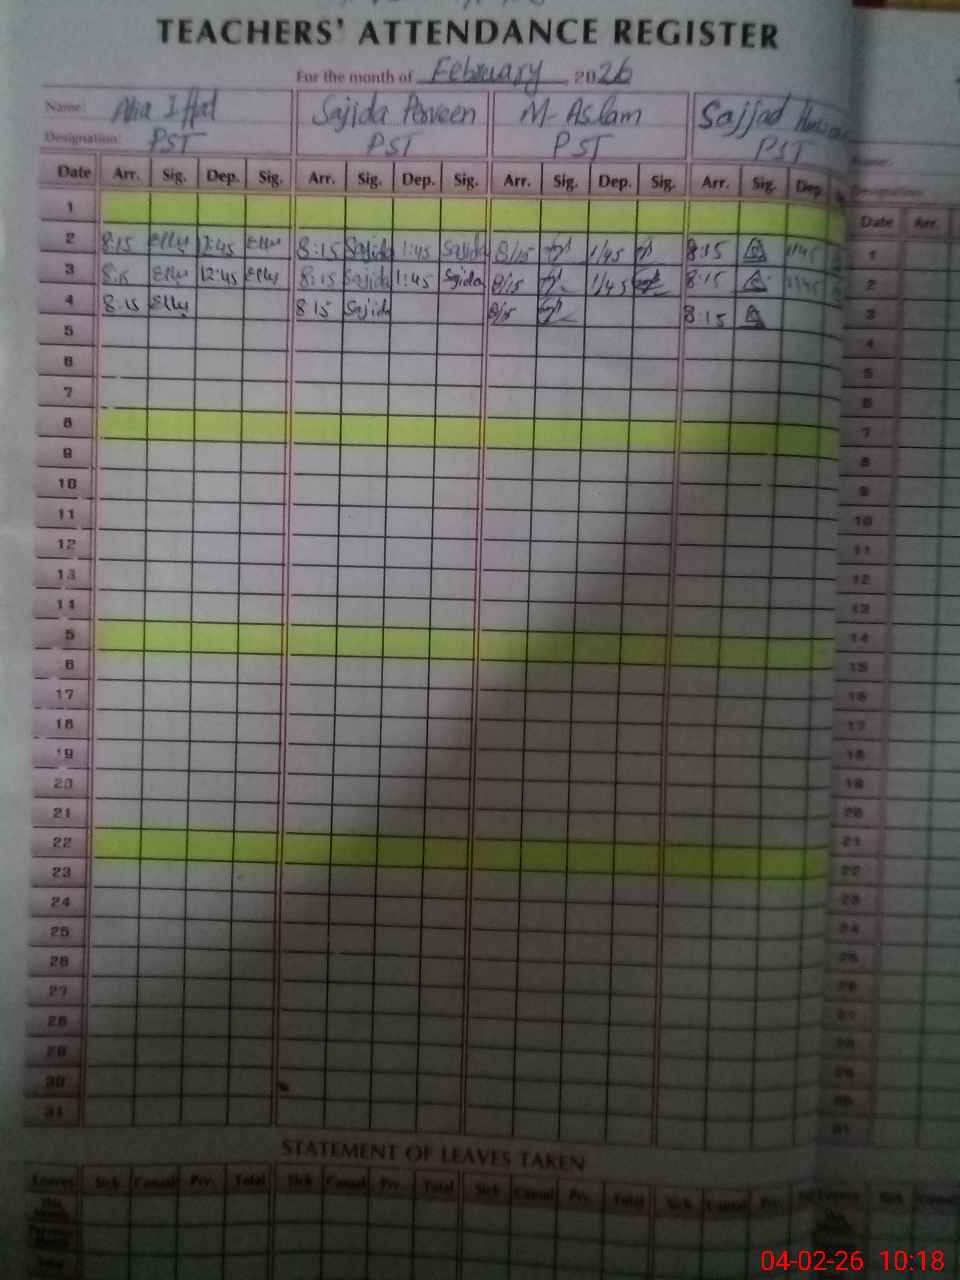 TEACHERS' ATTENDANCE REGISTER
For the month of February 2026
Name: Sajida Perveen M-Aslam Sajjad
Designation: PST PST PST PST
Date Arr. Sig. Dep. Sig. Arr. Sig. Dep. Sig. Arr. Sig. Dep. Sig. Arr. Sig. Dep.
Date Arr.
1
2 8:15 Elly 12:45 Elly 8:15 Sajida 1:45 Sajida 8/15 1/45 8:15 1:45
3 8:15 Elly 12:45 Elly 8:15 Sajida 1:45 Sajida 8/15 1/45 8:15 1:45
4 8:15 Elly 8:15 Sajida 8/15 8:15
5
6
7
8
9
10
11
12
13
14
5
6
17
18
19
20
21
22
23
24
25
26
27
28
29
30
31
1
2
3
4
5
6
7
8
9
10
11
12
13
14
15
16
17
18
19
20
21
22
23
24
25
STATEMENT OF LEAVES TAKEN
Leaves Sick Casual Prv. Total Sick Casual Prv. Total Sick Casual Prv. Total Sick Casual Prv.
04-02-26 10:18